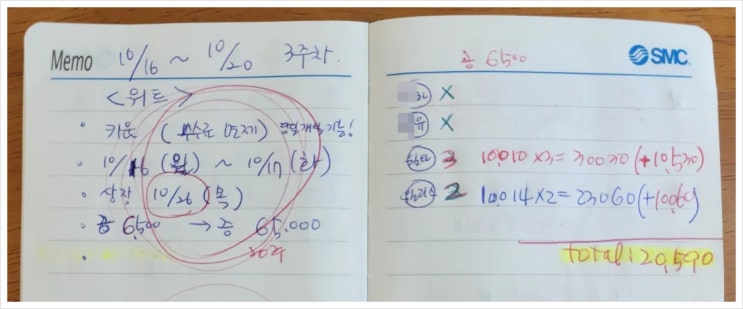 Memo 10/16 ~ 10/20 3주차
<워트>
• 키움 (수수료 면제) 당일개설가능!
• 10/16 (월) ~ 10/17 (화)
• 상장 10/26 (목)
• 공 6,500 → 증 65,000
20주
•
총 6500
SMC
X
X
3 10,010 x 3 = 30030 (+10,530)
2 10,014 x 2 = 23060 (+10,060)
total : 20,590